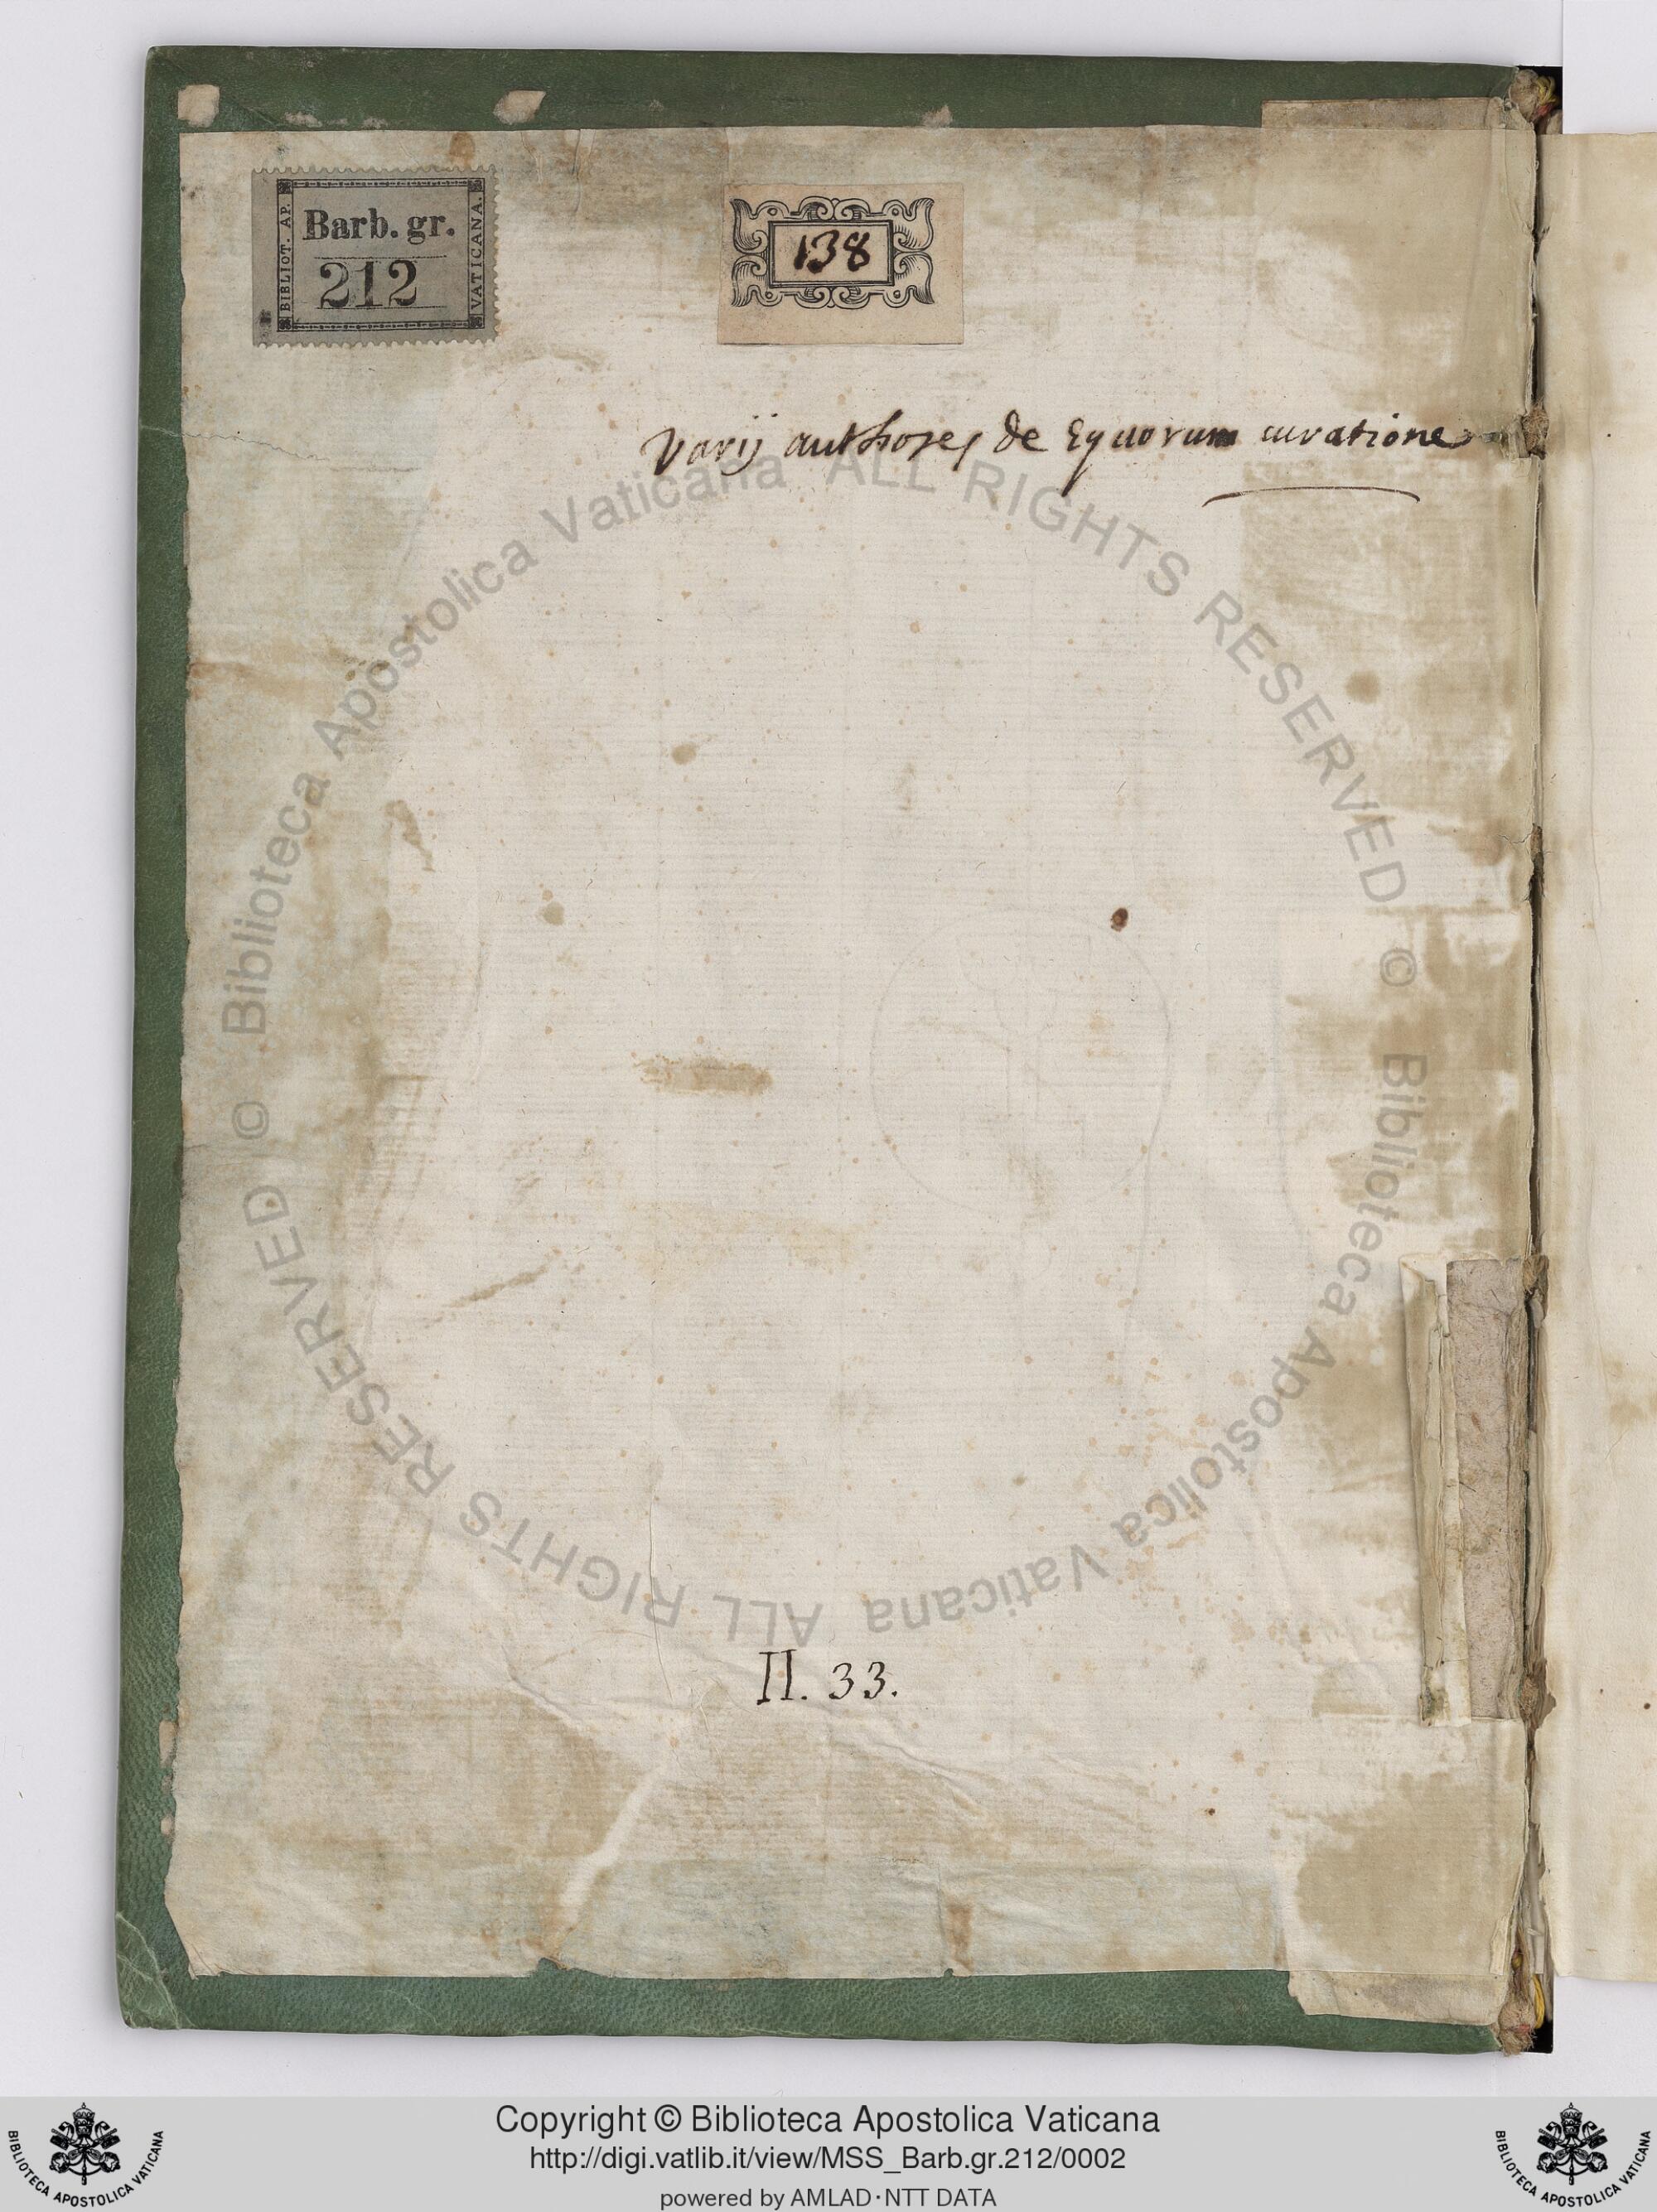 BIBLIOT. AP. VATICANA.
Barb. gr.
212
138
Varij authores de Equorum curatione
II. 33.
© Biblioteca Apostolica Vaticana ALL RIGHTS RESERVED
© Biblioteca Apostolica Vaticana ALL RIGHTS RESERVED
Copyright © Biblioteca Apostolica Vaticana
http://digi.vatlib.it/view/MSS_Barb.gr.212/0002
powered by AMLAD·NTT DATA
BIBLIOTECA APOSTOLICA VATICANA
BIBLIOTECA APOSTOLICA VATICANA